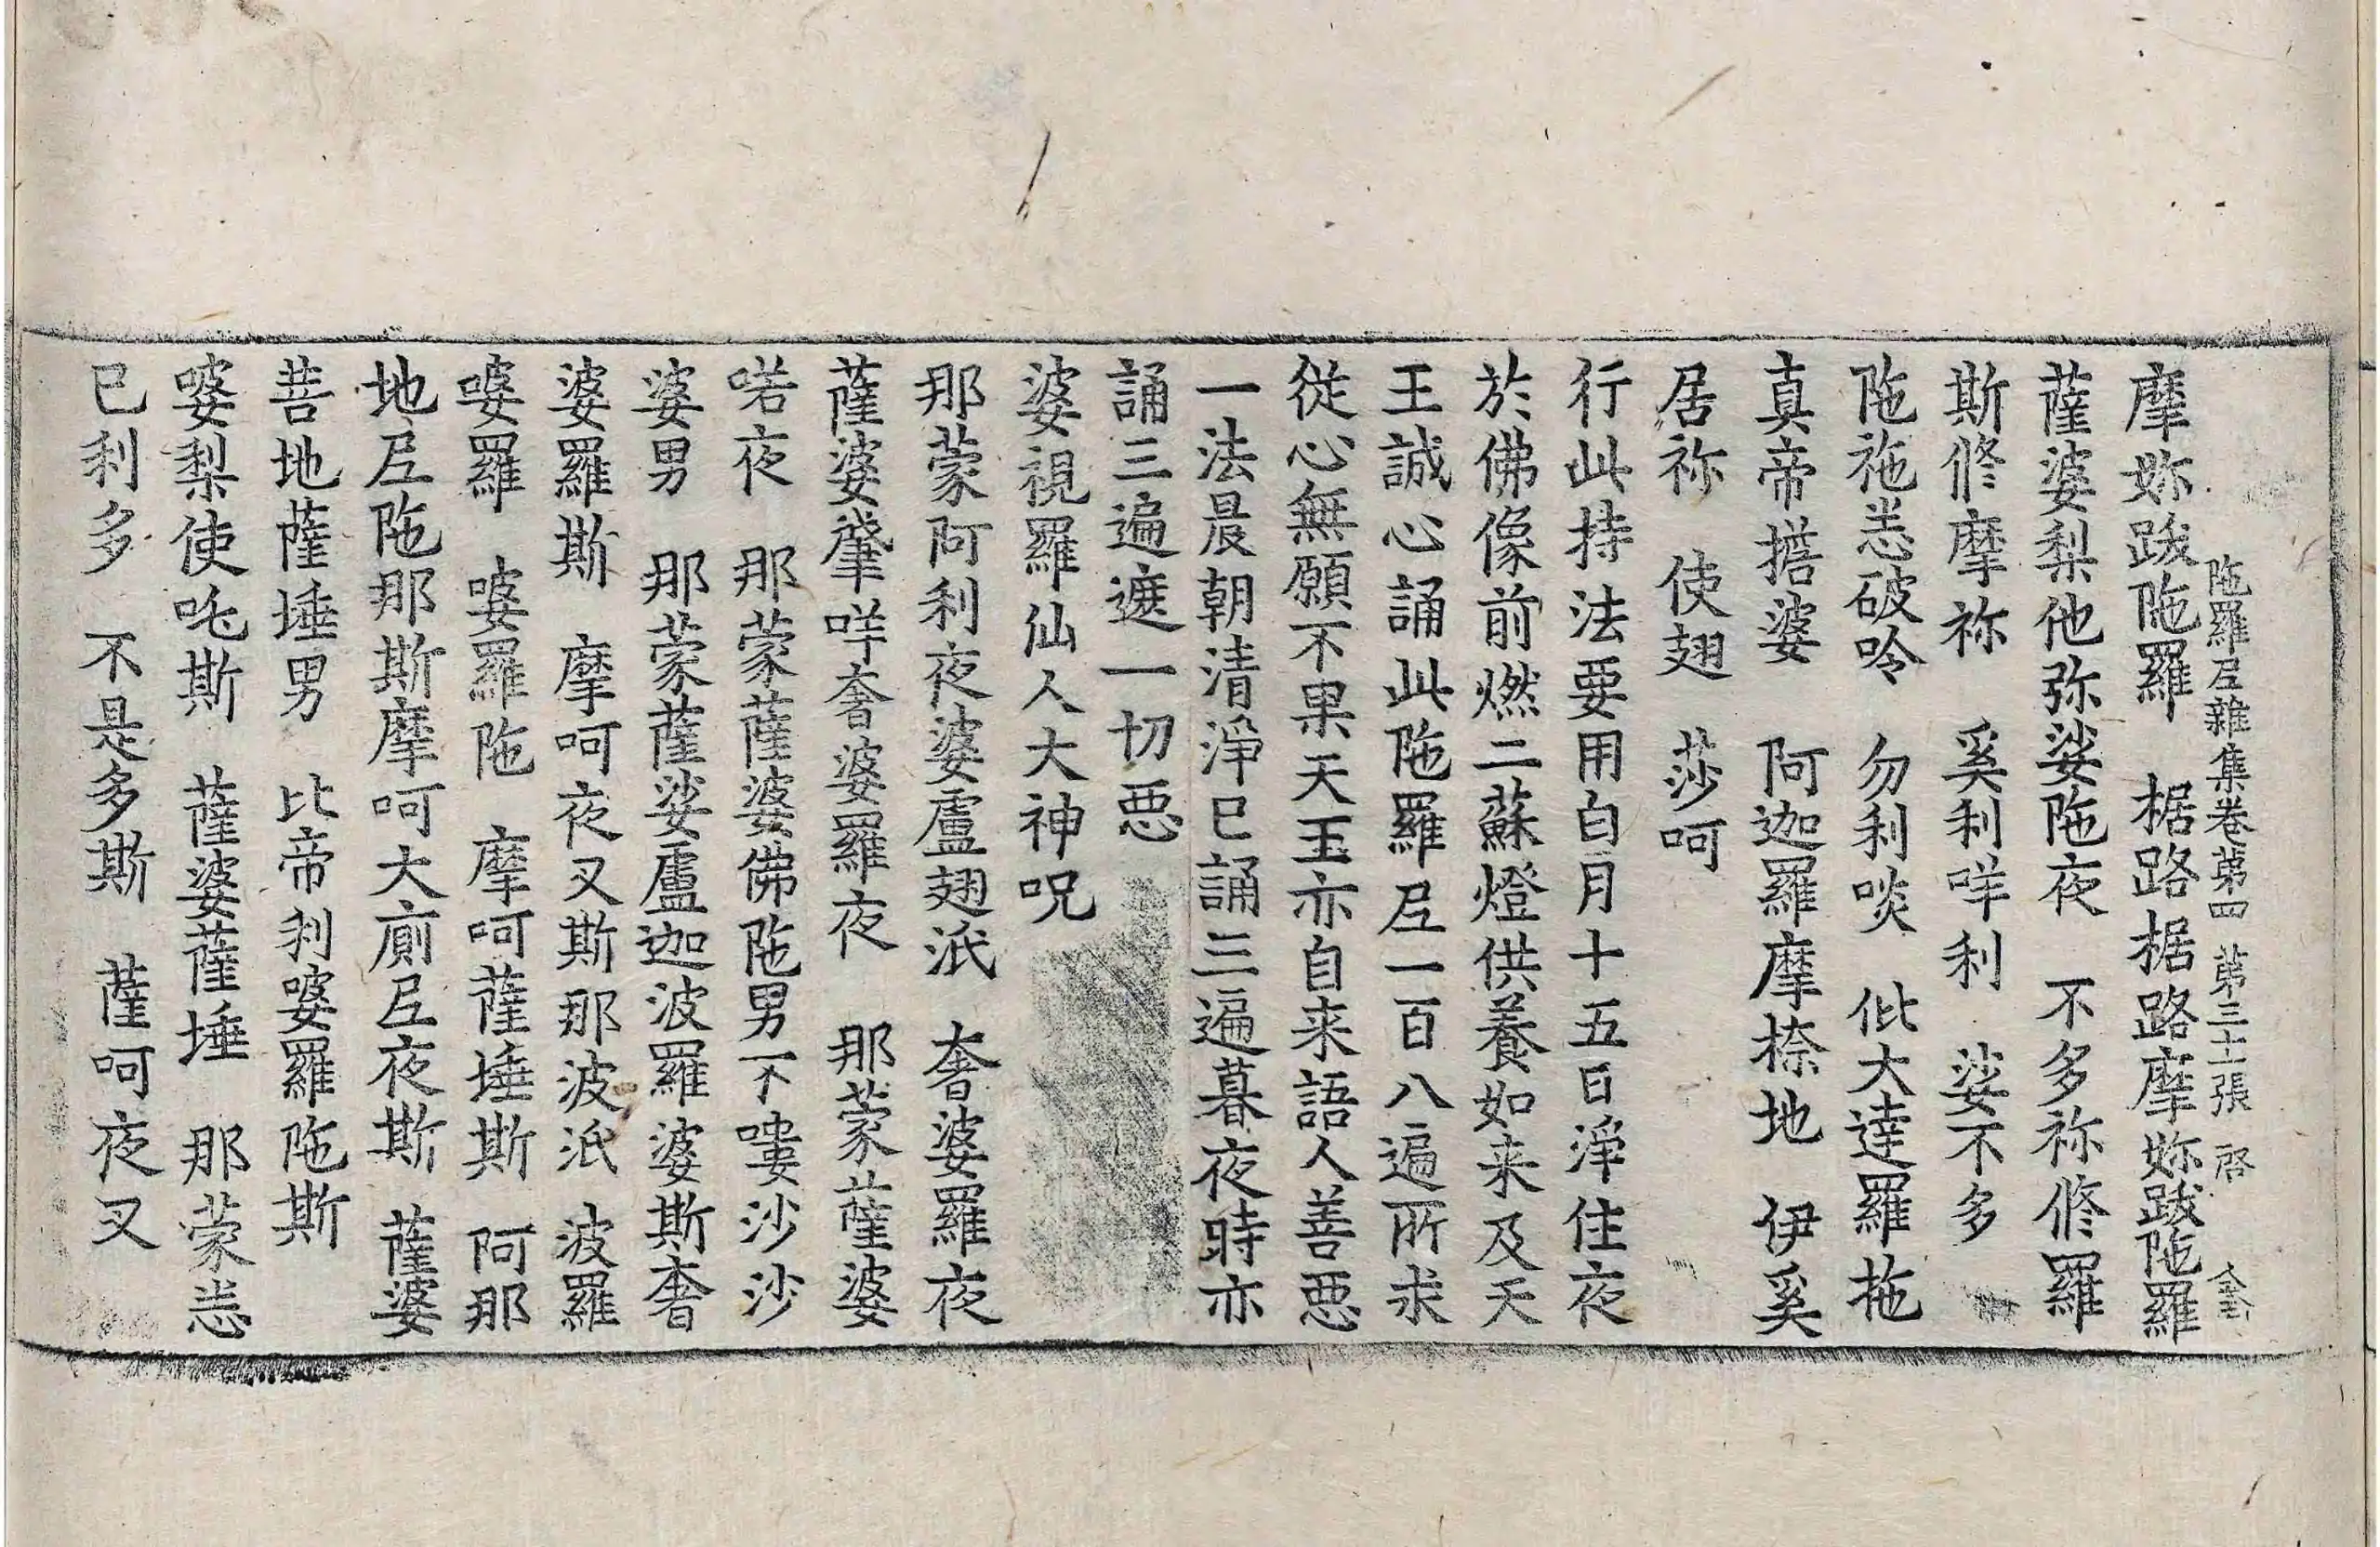 陁羅𡰱雜集卷苐四 苐三十張 启
摩妳跋陁羅 椐路椐路摩妳跋陁羅
薩婆梨他弥娑陁夜 不多祢修羅
斯修摩祢 奚利咩利 娑不多
陁袘恙破呤 勿利啖 仳大達羅拖
真帝㨾婆 阿迦羅摩㮏地 伊奚
居祢 使翅 莎呵
行此持法要用白月十五日淨住夜
於佛像前燃二蘇燈供養如来及天
王誠心誦此陁羅𡰱一百八遍所求
從心無願不果天王亦自来語人善惡
一法晨朝清淨已誦三遍暮夜時亦
誦三遍遮一切惡
婆視羅仙人大神呪
那蒙阿利夜婆盧翅泜 奢婆羅夜
薩婆肇咩奢婆羅夜 那蒙薩婆
喏夜 那蒙薩婆佛陁男不嘍沙沙
婆男 那蒙薩娑盧迦波羅婆斯奢
婆羅斯 摩呵夜叉斯那波泜 波羅
婆羅 婆羅陁 摩呵薩埵斯 阿那
地𡰱陁那斯摩呵大廁𡰱夜斯 薩婆
菩地薩埵男 比帝利婆羅陁斯
婆梨使吒斯 薩婆薩埵 那蒙恙
已利多 不是多斯 薩呵夜叉